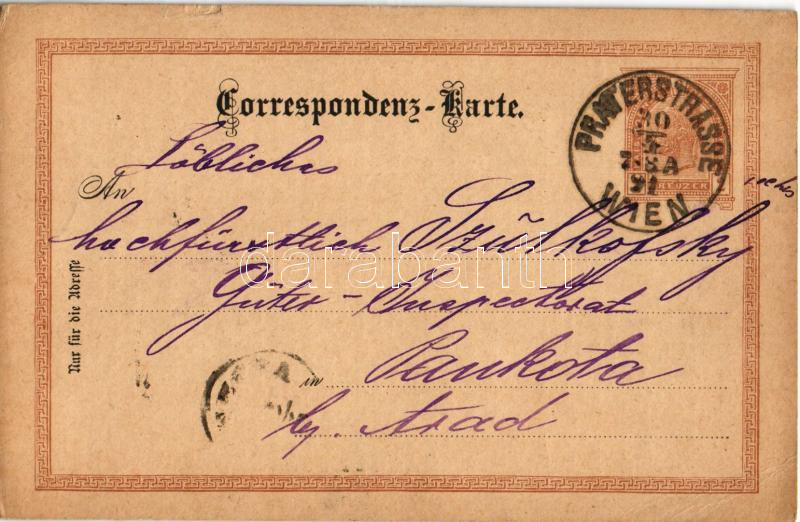 Correspondenz-Karte.
PRATERSTRASSE
30
4
7-8A
91
WIEN
KREUZER
Löbliches
An
hochfürstlich Szulkofsky
Güter-Inspectorat
in Pankota
by. Arad
Nur für die Adresse
darabanth